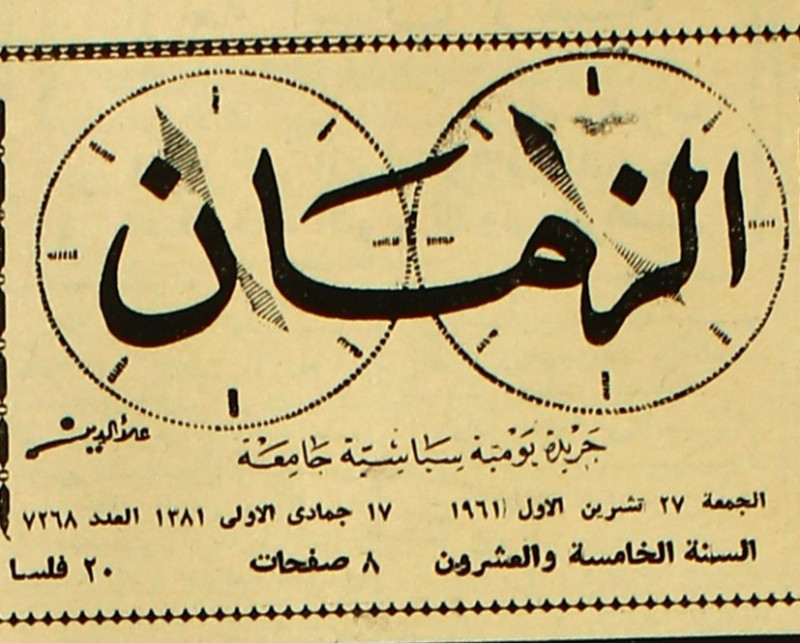 الزمان
علاءالدين
جريدة يومية سياسية جامعة
الجمعة ٢٧ تشرين الاول ١٩٦١ ١٧ جمادى الاولى ١٣٨١ العدد ٧٢٦٨
السنة الخامسة والعشرون ٨ صفحات ٢٠ فلسا